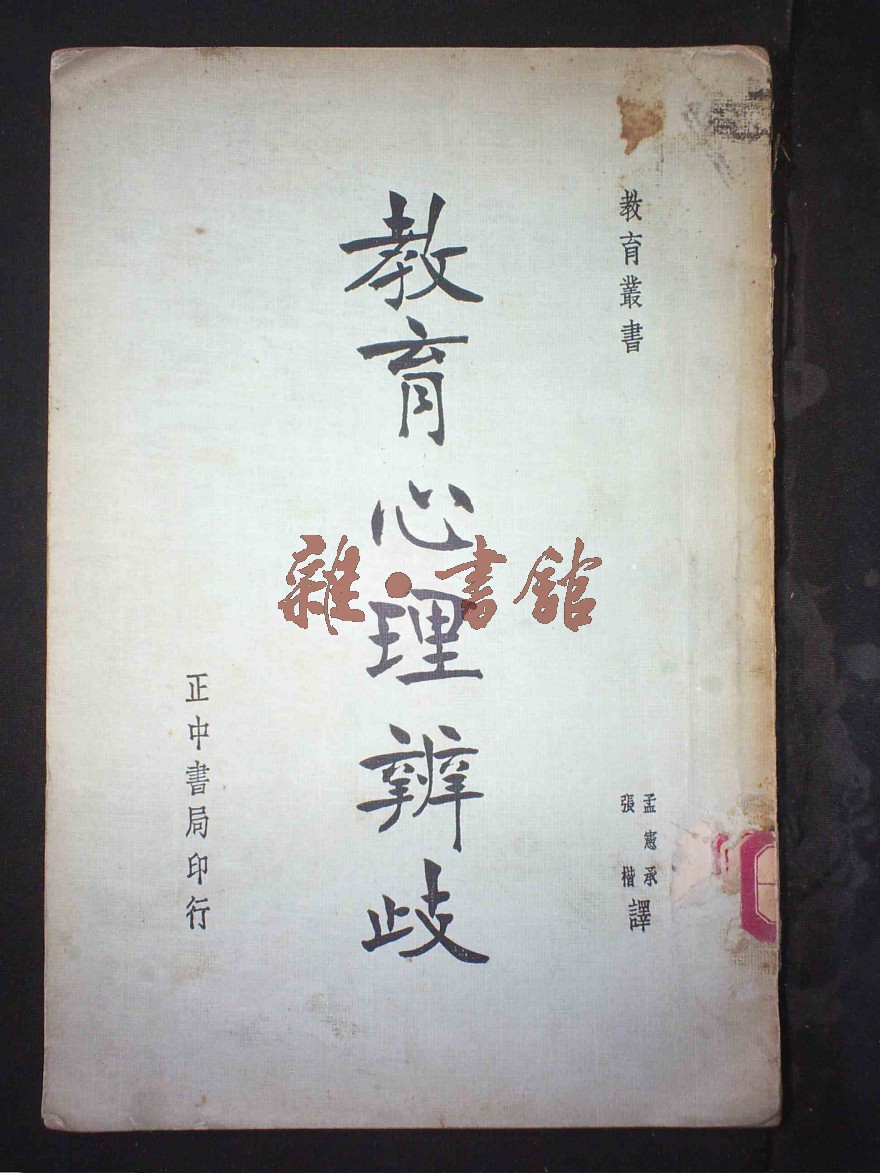 教育叢書
孟憲承
張楷
譯
教育心理辨歧
正中書局印行
雜·書館